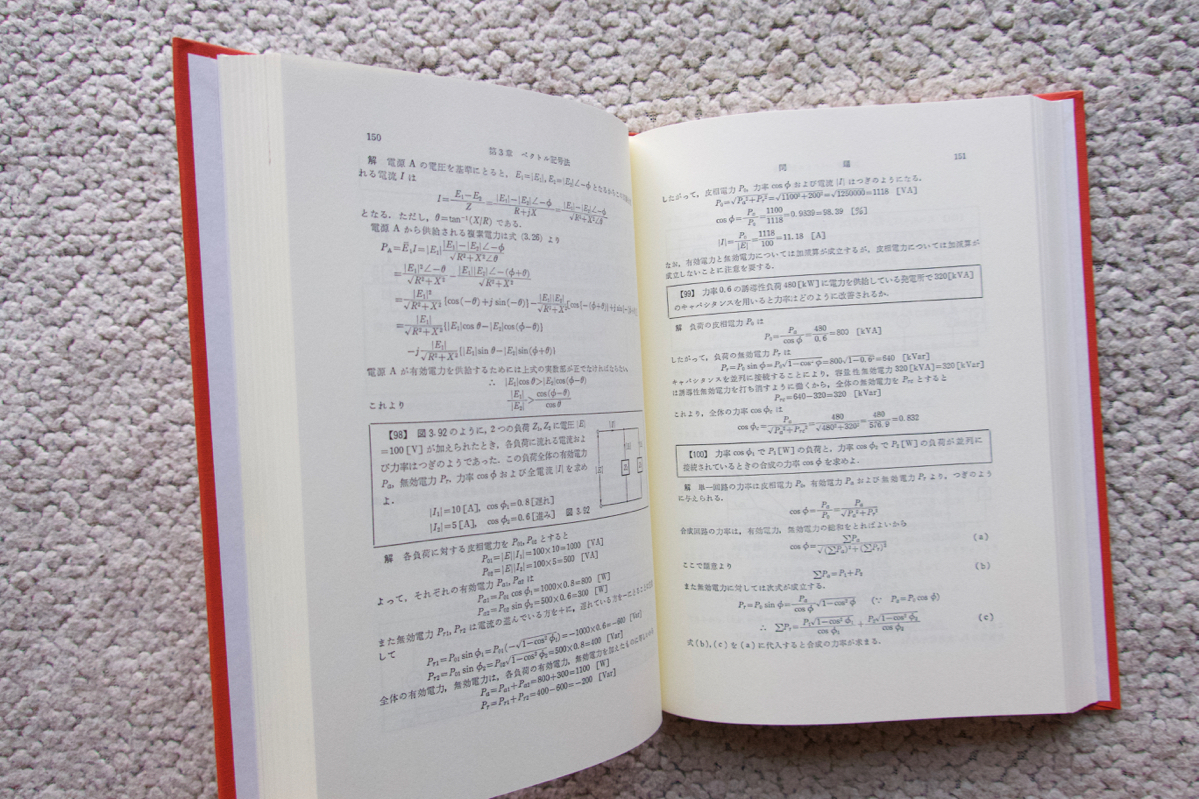 150
第3章 ベクトル記号法
解 電源 A の電圧を基準にとると, E₁=|E₁|, E₂=|E₂|∠−φ となるから
れる電流 I は
I=(E₁−E₂)/Z=(|E₁|−|E₂|∠−φ)/(R+jX)=(|E₁|−|E₂|∠−φ)/(√R²+X²∠θ)
となる. ただし, θ=tan⁻¹(X/R) である.
電源 A から供給される複素電力は式 (3.26) より
P_A=Ē₁I=|E₁|(|E₁|−|E₂|∠−φ)/(√R²+X²∠θ)
=(|E₁|²∠−θ)/(√R²+X²)−(|E₁||E₂|∠−(φ+θ))/(√R²+X²)
=|E₁|²/√R²+X²{cos(−θ)+j sin(−θ)}−|E₁||E₂|/√R²+X²
=|E₁|/√R²+X²{|E₁|cos θ−|E₂|cos(φ−θ)}
−j|E₁|/√R²+X²{|E₁|sin θ−|E₂|sin(φ+θ)}
電源 A が有効電力を供給するためには上式の実数部が正でなければならない.
∴ |E₁|cos θ>|E₂|cos(φ−θ)
これより |E₁|/|E₂|>cos(φ−θ)/cos θ
【98】 図 3·92 のように, 2つの負荷 Z₁, Z₂ に電圧 |E|
=100 [V] が加えられたとき, 各負荷に流れる電流およ
び力率はつぎのようであった. この負荷全体の有効電力
Pa, 無効電力 Pr, 力率 cos φ および全電流 |I| を求め
よ.
|I₁|=10 [A], cos φ₁=0.8 [遅れ]
|I₂|=5 [A], cos φ₂=0.6 [進み] 図 3·92
解 各負荷に対する皮相電力を P₀₁, P₀₂ とすると
P₀₁=|E||I₁|=100×10=1000 [VA]
P₀₂=|E||I₂|=100×5=500 [VA]
よって, それぞれの有効電力 Pa₁, Pa₂ は
Pa₁=P₀₁ cos φ₁=1000×0.8=800 [W]
Pa₂=P₀₂ cos φ₂=500×0.6=300 [W]
また無効電力 Pr₁, Pr₂ は電流の進んでいる方を＋に, 遅れている方を
して
Pr₁=P₀₁ sin φ₁=P₀₁(−√1−cos² φ₁)=−1000×0.6=−600 [Var]
Pr₂=P₀₂ sin φ₂=P₀₂√1−cos² φ₂=500×0.8=400 [Var]
全体の有効電力, 無効電力は, 各負荷の有効電力, 無効電力を加えたものに
Pa=Pa₁+Pa₂=800+300=1100 [W]
Pr=Pr₁+Pr₂=400−600=−200 [Var]
問 題
151
したがって, 皮相電力 P₀, 力率 cos φ および電流 |I| はつぎのようになる.
P₀=√Pa²+Pr²=√1100²+200²=√1250000=1118 [VA]
cos φ=Pa/P₀=1100/1118=0.9839=98.39 [%]
|I|=P₀/|E|=1118/100=11.18 [A]
なお, 有効電力と無効電力については加算が成立するが, 皮相電力については加算が
成立しないことに注意を要する.
【99】 力率 0.6 の誘導性負荷 480 [kW] に電力を供給している発電所で 320 [kVA]
のキャパシタンスを用いると力率はどのように改善されるか.
解 負荷の皮相電力 P₀ は
P₀=Pa/cos φ=480/0.6=800 [kVA]
したがって, 負荷の無効電力 Pr は
Pr=P₀ sin φ=P₀√1−cos² φ=800√1−0.6²=640 [kVar]
キャパシタンスを並列に接続することにより, 容量性無効電力 320 [kVA]=320 [kVar]
は誘導性無効電力を打ち消すように働くから, 全体の無効電力を Prt とすると
Prt=640−320=320 [kVar]
これより, 全体の力率 cos φt は
cos φt=Pa/√Pa²+Prt²=480/√480²+320²=480/576.9=0.832
【100】 力率 cos φ₁ で P₁ [W] の負荷と, 力率 cos φ₂ で P₂ [W] の負荷が並列に
接続されているときの合成の力率 cos φ を求めよ.
解 単一回路の力率は皮相電力 P₀, 有効電力 Pa および無効電力 Pr より, つぎのよう
に与えられる.
cos φ=Pa/P₀=Pa/√Pa²+Pr²
合成回路の力率は, 有効電力, 無効電力の総和をとればよいから
cos φ=∑Pa/√(∑Pa)²+(∑Pr)² (a)
ここで題意より
∑Pa=P₁+P₂ (b)
また無効電力に対しては次式が成立する.
Pr=P₀ sin φ=Pa/cos φ √1−cos² φ (∵ Pa=P₀ cos φ)
∴ ∑Pr=P₁√1−cos² φ₁/cos φ₁+P₂√1−cos² φ₂/cos φ₂ (c)
式 (b), (c) を (a) に代入すると合成の力率が求まる.